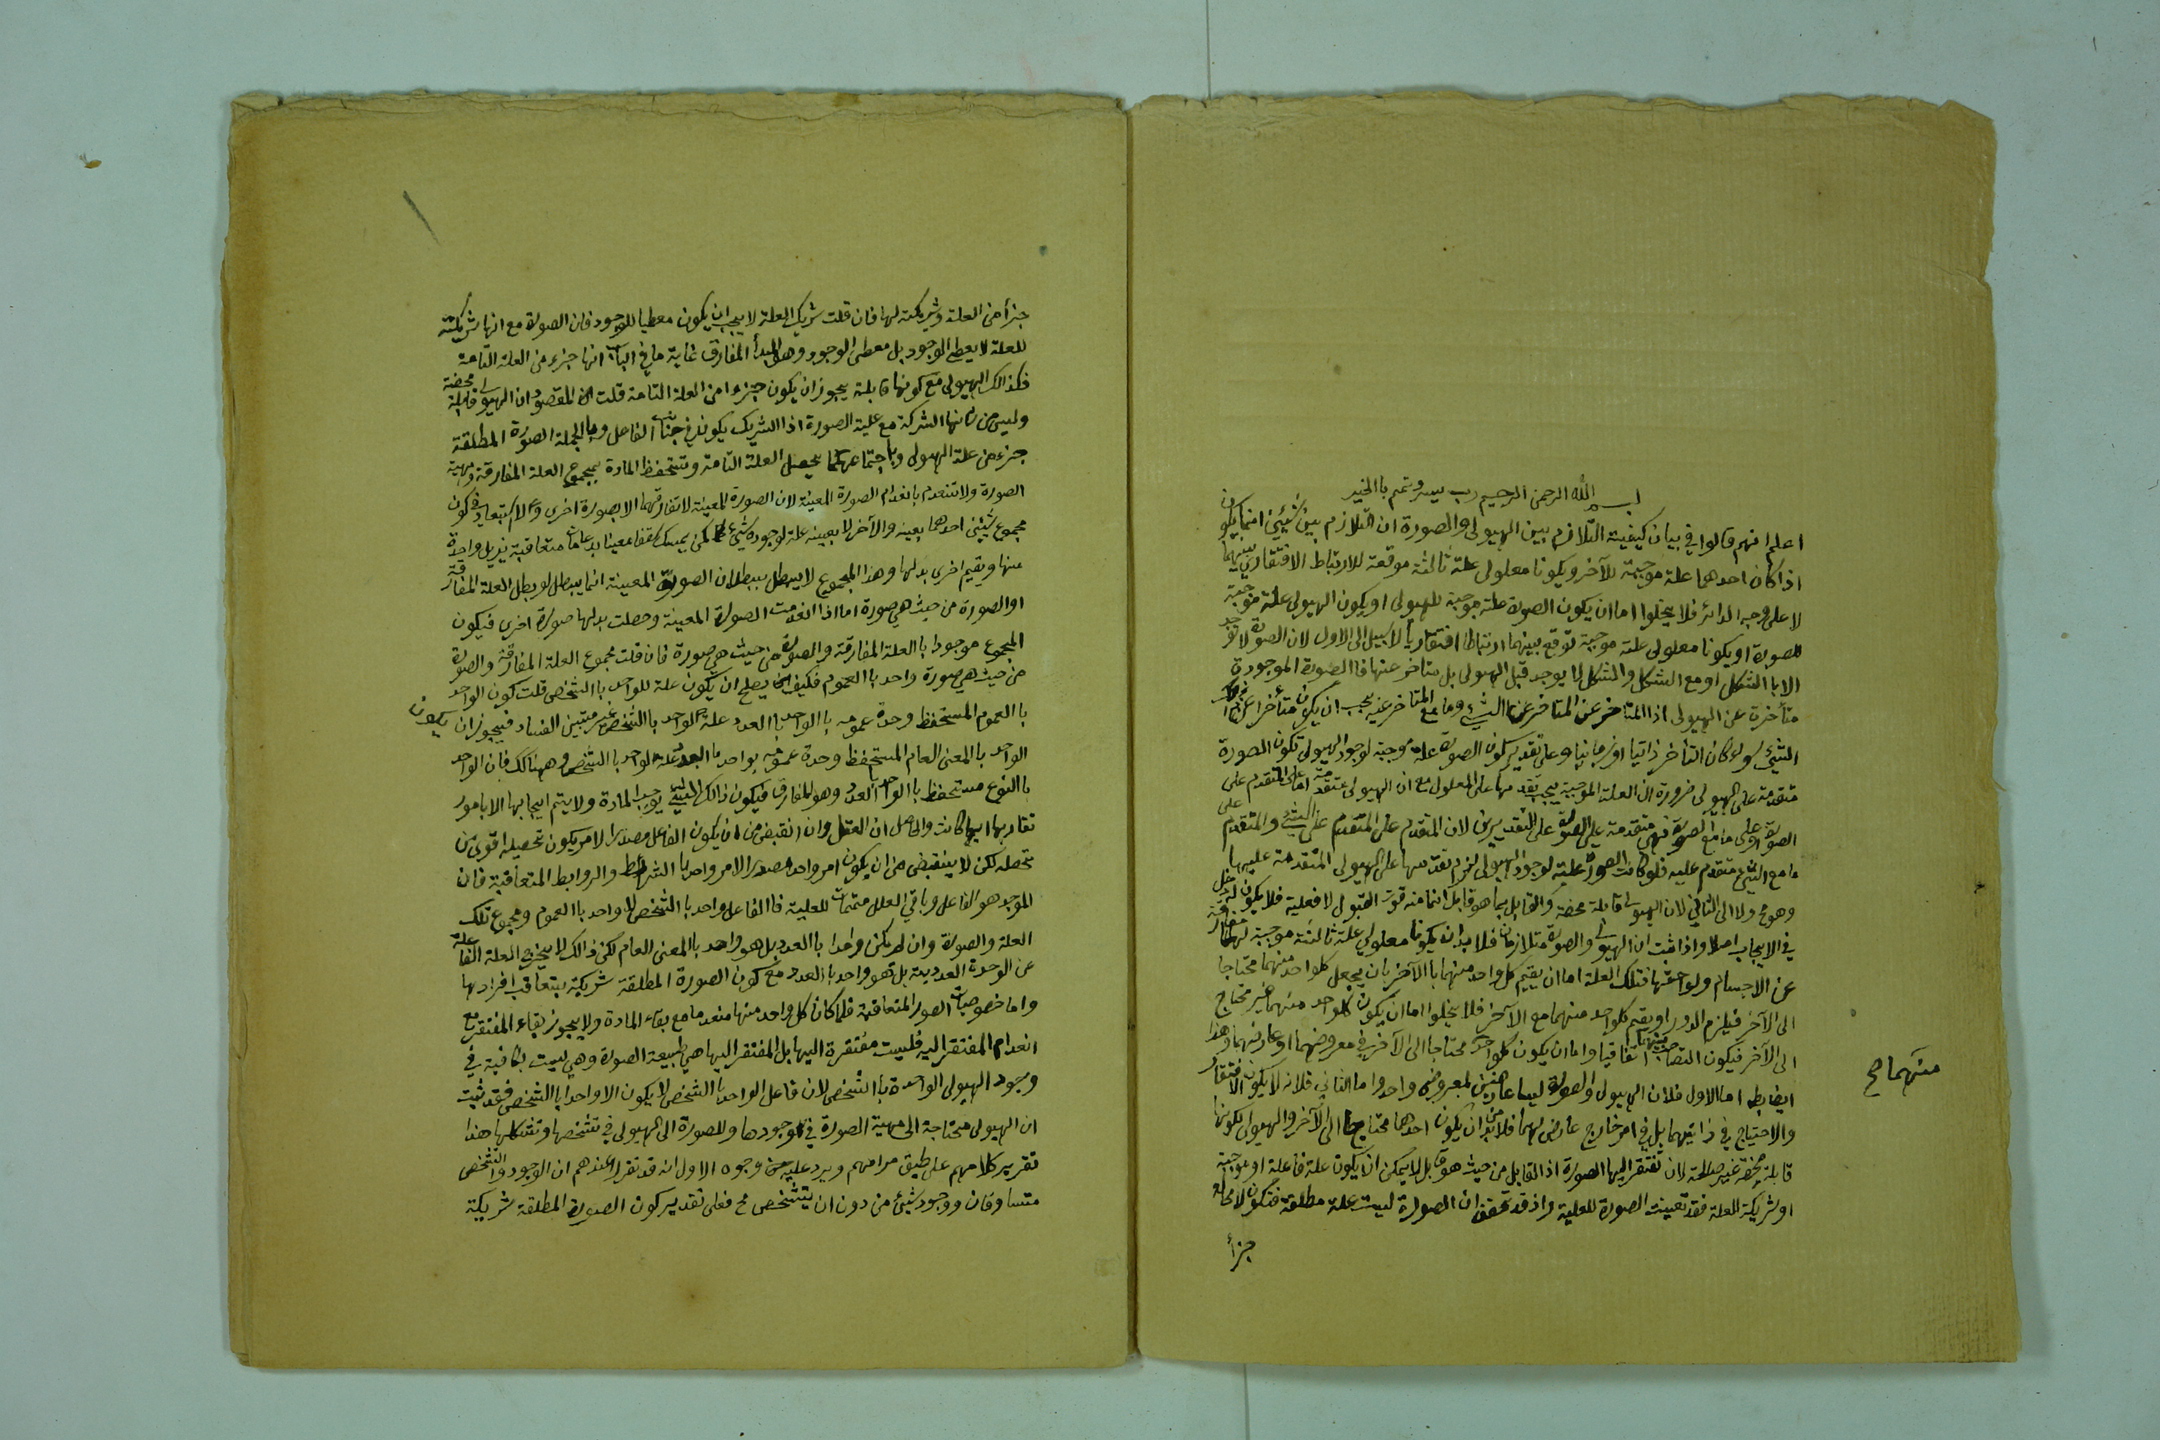 بسم الله الرحمن الرحيم رب يسر وتمم بالخير
اعلم انهم قالوا في بيان كيفية التلازم بين الهيولى والصورة ان التلازم بين شيئين انما يكون
اذا كان احدهما علة موجبة للآخر ويكونا معلولى علة ثالثة موقعة للارتباط الافتقاري بينهما
لا على وجه الدائر فلا يخلوا اما ان يكون الصورة علة موجبة للهيولى او يكون الهيولى علة موجبة
للصورة او يكونا معلولى علة موجبة توقع بينهما ارتباطا افتقاريا لا سبيل الى الاول لان الصورة لا توجد
الا بالشكل او مع الشكل والشكل لا يوجد قبل الهيولى بل متاخر عنها فالصورة الموجودة
متأخرة عن الهيولى اذ المتاخر عن المتاخر عن الشئ وما مع المتاخر عنه يجب ان يكون متأخرا عن ذلك
الشئ سواء كان التأخر ذاتيا او زمانيا وعلى تقدير كون الصورة علة موجبة لوجود الهيولى تكون الصورة
متقدمة على الهيولى ضرورة ان العلة الموجبة يجب تقدمها على المعلول مع ان الهيولى متقدمة اما على المتقدم على
الصورة او على ما مع الصورة فهي متقدمة على الصورة على التقديرين لان المتقدم على المتقدم على الشئ والمتقدم على
ما مع الشئ متقدم عليه فلو كانت الصورة علة لوجود الهيولى لزم تقدمها على الهيولى المتقدمة عليها
وهو مح ولا الى الثاني لان الهيولى قابلة محضة والقابل بما هو قابل انما منه قوة القبول لا فعلية فلا يكون له دخل
في الايجاب اصلا واذا ثبت ان الهيولى والصورة متلازمان فلا بد ان يكونا معلولي علة ثالثة موجبة لهما مفارقة
عن الاجسام ولواحقها فتلك العلة اما ان يقيم كل واحد منهما بالآخر بان يجعل كلواحد منهما محتاجا
الى الآخر فيلزم الدور او يقيم كلواحد منهما مع الآخر فلا يخلوا اما ان يكون كلواحد منهما غير محتاج
الى الآخر فيكون التصاحب بينهما اتفاقيا واما ان يكون كلواحد محتاجا الى الآخر في معروضهما او عارضهما وهذا
ايضا بط اما الاول فلان الهيولى والصورة ليسا عارضين لمعروض واحد واما الثاني فلانه لا يكون الافتقار
والاحتياج في ذاتيهما بل في امر خارج عارض لهما فلا بد من ان يكون احدهما محتاجا الى الآخر والهيولى لكونها
قابلة محضة غير صالحة لان تفتقر اليها الصورة اذ القابل من حيث هو قابل لا يمكن ان يكون علة فاعلة او موجبة
او شريكة للعلة فقد تعينت الصورة للعلية واذ قد تحقق ان الصورة ليست علة مطلقة فتكون لا محالة
جزأ
منهما صح
جزأ من العلة وشريكة لها فان قلت شريك العلة لا يجب ان يكون معطيا للوجود فان الصورة مع انها شريكة
للعلة لا يعطى الوجود بل معطى الوجود وهو المبدأ المفارق غاية ما في الباب انها جزء من العلة التامة
فكذالك الهيولى مع كونها قابلة يجوز ان يكون جزءا من العلة التامة قلت ان المقصود ان الهيولى قابلة محضة
وليس من شانها الشركة مع علية الصورة اذ الشريك يكون في جانب الفاعل وبالجملة الصورة المطلقة
جزء من علة الهيولى وباجتماعهما يحصل العلة التامة وتستحفظ المادة بمجموع العلة المفارقة ومهية
الصورة ولا تنعدم بانعدام الصورة المعينة لان الصورة المعينة لا تفارقها الا بصورة اخرى ولا استبعاد في كون
مجموع شيئين احدهما بعينه والآخر لا بعينه علة لوجود شئ كمن يمسك سقفا معينا بدعامات متعاقبة يزيل واحدة
منها ويقيم اخرى بدلها وهذا المجموع لا يبطل ببطلان الصورة المعينة انما يبطل لو بطل العلة المفارقة
او الصورة من حيث هي صورة اما اذا انعدمت الصورة المعينة وحصلت بدلها صورة اخرى فيكون
المجموع موجودا بالعلة المفارقة والصورة من حيث هي صورة فان قلت مجموع العلة المفارقة والصورة
من حيث هي صورة واحد بالعموم فكيف يصلح ان يكون علة للواحد بالشخص قلت كون الواحد
بالعموم المستحفظ وحدة عمومه بالواحد بالعدد علة للواحد بالشخص غير متبين الفساد فيجوز ان يكون
الواحد بالمعنى العام المستحفظ وحدة عمومه بواحد بالعدد علة لواحد بالشخص وههنا كذلك فان الواحد
بالنوع مستحفظ بالواحد بالعدد وهو المفارق فيكون ذالك الشئ يوجب المادة ولا يتم ايجابها الا بامور
تقارنها ايها كانت والحاصل ان العقل وان انقبض من ان يكون الفاعل مصدرا لامر يكون تحصيله اقوى من
تحصله لكن لا ينقبض من ان يكون امر واحد مصدرا لامر واحد بالشرائط والروابط المتعاقبة فان
الموجد هو الفاعل وباقي العلل متممات للعلية فالفاعل واحد بالشخص لا واحد بالعموم ومجموع تلك
العلة والصورة وان لم يكن واحدا بالعدد بل هو واحد بالمعنى العام لكن ذالك لا يخرج العلة الفاعلة
عن الوحدة العددية بل هو واحد بالعدد مع كون الصورة المطلقة شريكة بتعاقب افرادها
واما خصوصيات الصور المتعاقبة فلما كان كل واحد منها منعدما مع بقاء المادة ولا يجوز بقاء المفتقر مع
انعدام المفتقر اليه فليست مفتقرة اليها بل المفتقر اليها هي طبيعة الصورة وهي ليست بكافية في
وجود الهيولى الواحدة بالشخص لان فاعل الواحد بالشخص لا يكون الا واحدا بالشخص فقد ثبت
ان الهيولى محتاجة الى مهية الصورة في وجودها وللصورة الى الهيولى في تشخصها وتشكلها هذا
تقرير كلامهم على طبق مرامهم ويرد عليه من وجوه الاول انه قد تقرر عندهم ان الوجود والتشخص
متساوقان ووجود شئ من دون ان يتشخص مح فعلى تقدير كون الصورة المطلقة شريكة